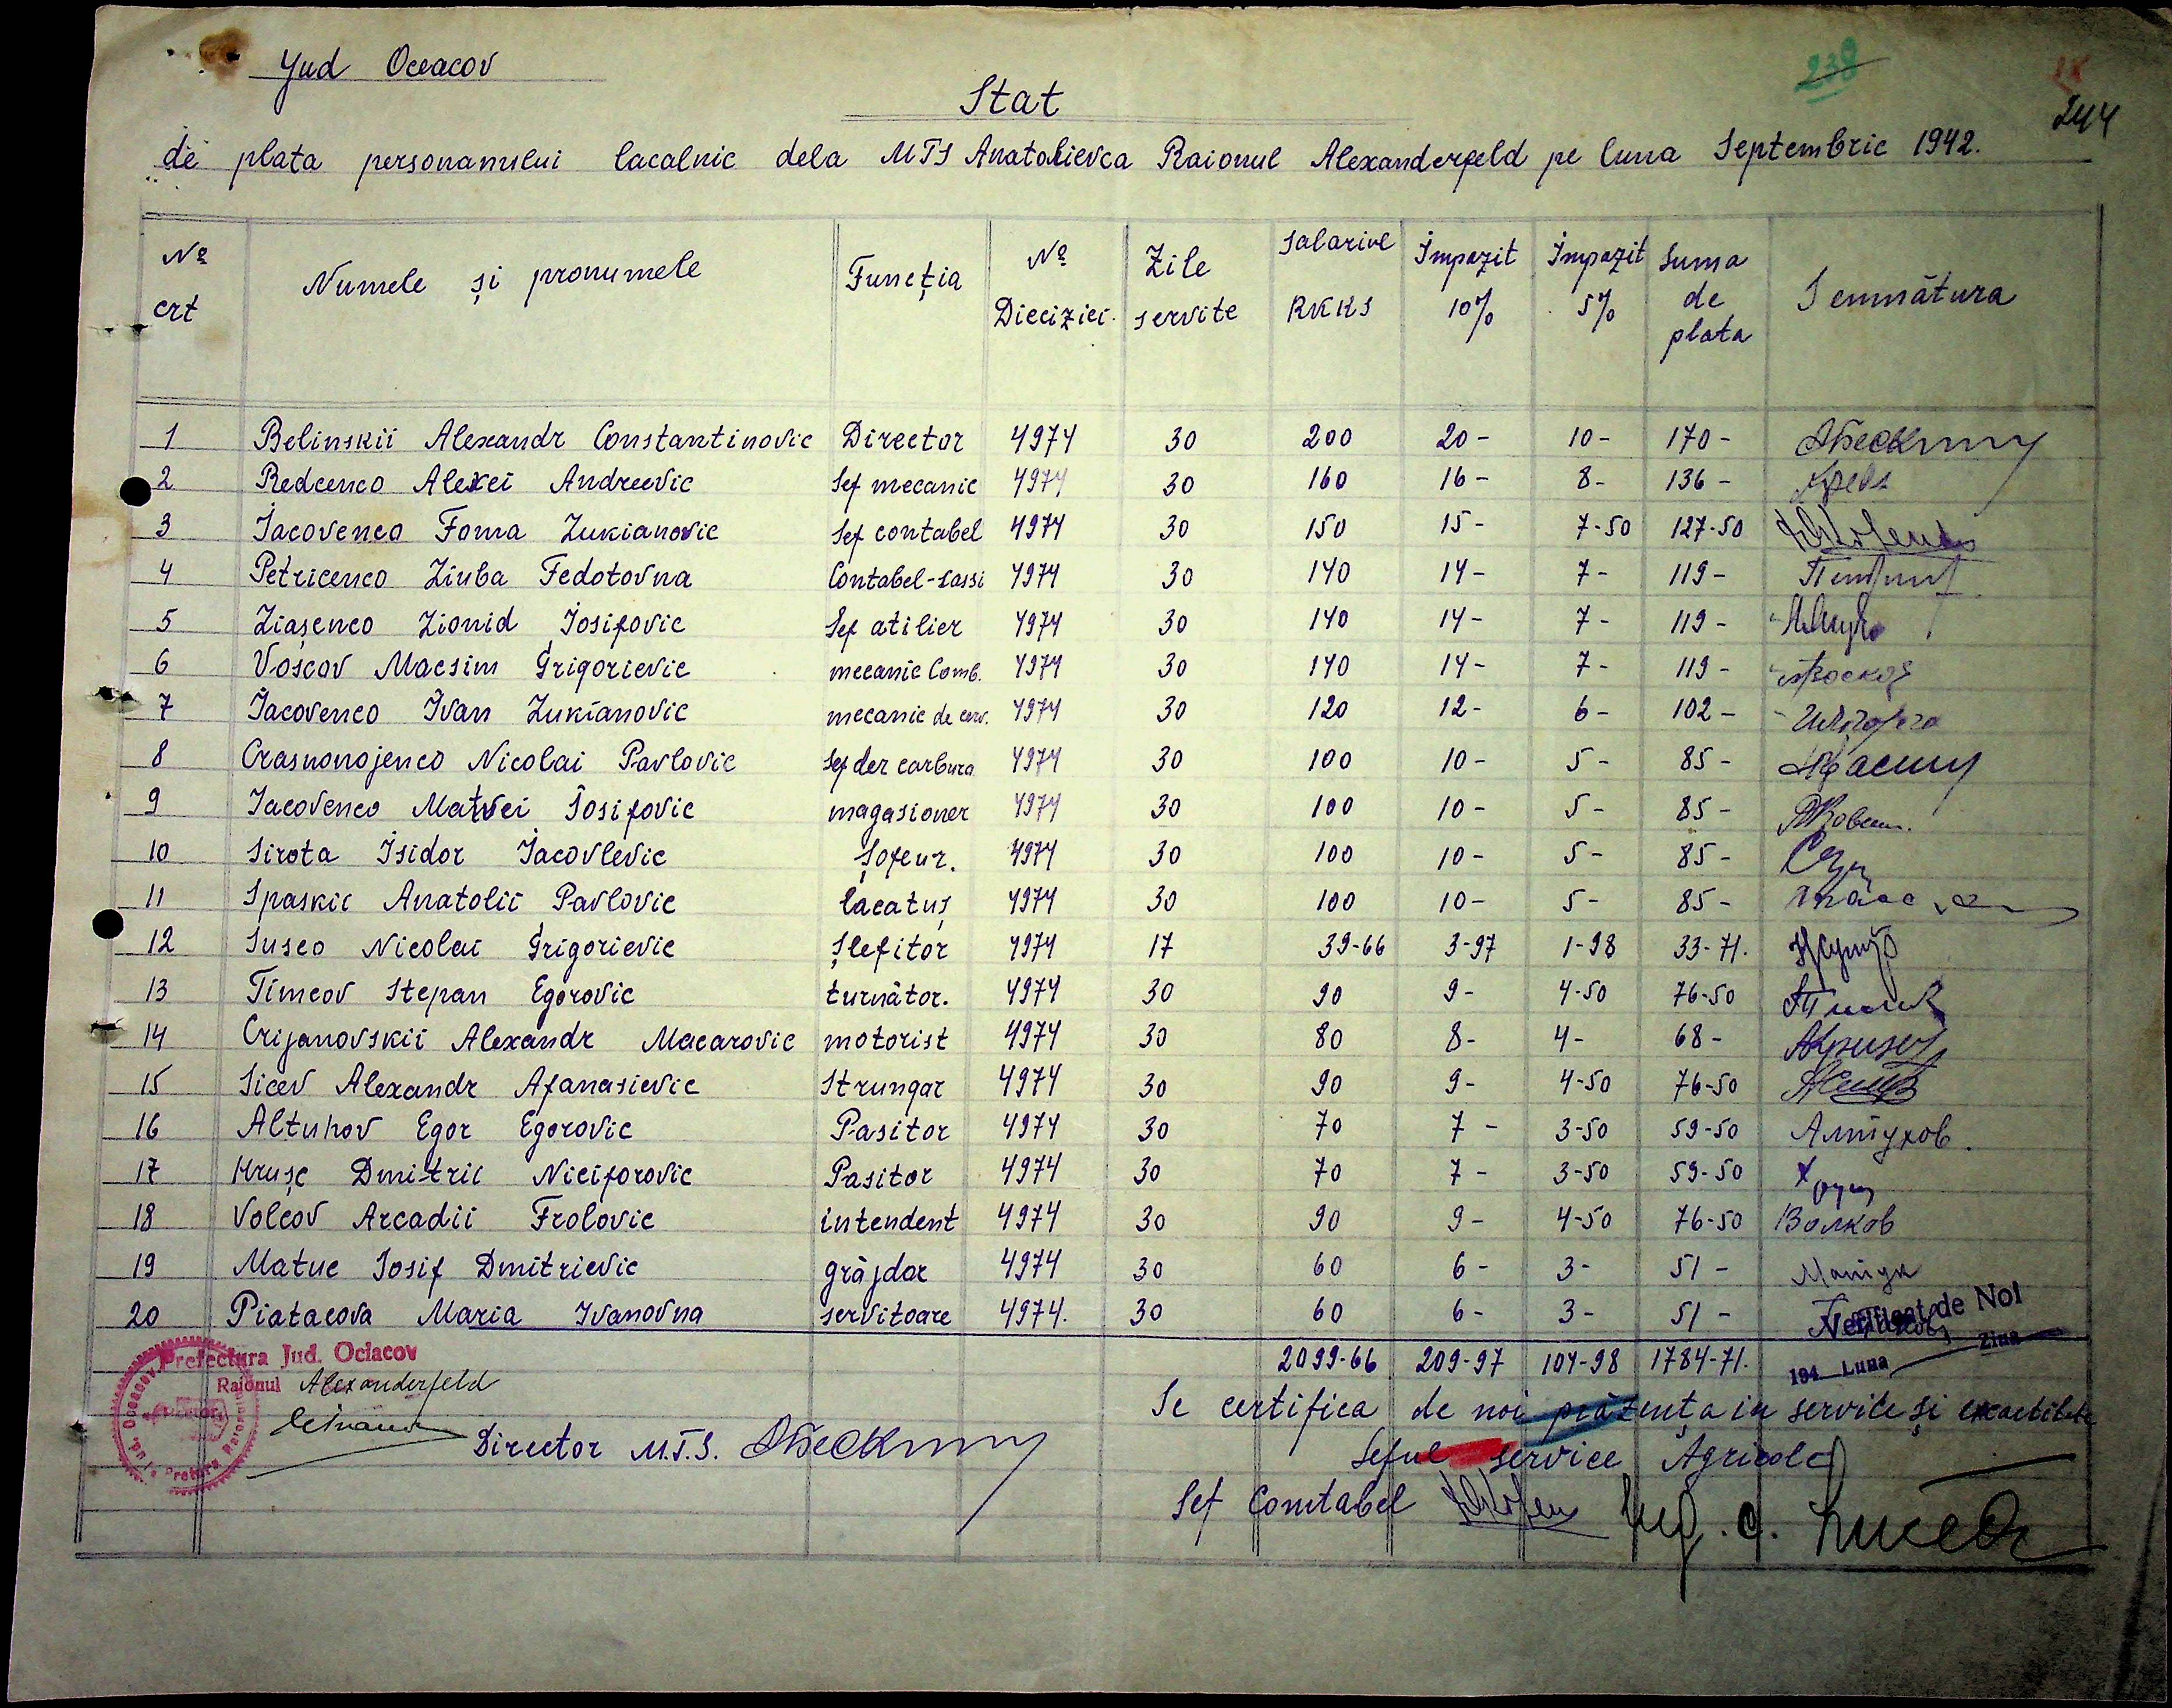 Jud Oceacov
238
244
Stat
de plata personanului lacalnic dela MTS Anatolievca Raionul Alexanderfeld pe luna Septembrie 1942.
№ crt Numele și pronumele Funcția № Dieciziei Zile servite Salariul RKKS İmpozit 10% İmpozit 5% Suma de plata Semnătura
1 Belinskii Alexandr Constantinovic Director 4974 30 200 20- 10- 170-
2 Redcenco Alexei Andreevic Sef mecanic 4974 30 160 16- 8- 136-
3 Iacovenco Foma Lukianovic Sef contabel 4974 30 150 15- 7-50 127-50
4 Petricenco Liuba Fedotovna Contabel-cassi 4974 30 140 14- 7- 119-
5 Liașenco Lionid Iosifovic Sef atilier 4974 30 140 14- 7- 119-
6 Voscov Macsim Grigorievic mecanic Comb. 4974 30 140 14- 7- 119-
7 Iacovenco Ivan Lukianovic mecanic de 4974 30 120 12- 6- 102-
8 Crasnonojenco Nicolai Pavlovic Sef der carbura 4974 30 100 10- 5- 85-
9 Iacovenco Matvei Iosifovic magasioner 4974 30 100 10- 5- 85-
10 Sirota Isidor Iacovlevic Șofeur. 4974 30 100 10- 5- 85-
11 Spaskii Anatolii Pavlovic lacatuș 4974 30 100 10- 5- 85-
12 Susco Nicolai Grigorievic Șlefitor 4974 17 39-66 3-97 1-98 33-71.
13 Timcov Stepan Egorovic turnător. 4974 30 90 9- 4-50 76-50
14 Crijanovskii Alexandr Macarovic motorist 4974 30 80 8- 4- 68-
15 Sicev Alexandr Afanasievic Strungar 4974 30 90 9- 4-50 76-50
16 Altuhov Egor Egorovic Pasitor 4974 30 70 7- 3-50 59-50 Алтухов.
17 Hrușc Dmitrii Niciforovic Pasitor 4974 30 70 7- 3-50 59-50 Хрущ
18 Volcov Arcadii Frolovic intendent 4974 30 90 9- 4-50 76-50 Волков
19 Matuc Iosif Dmitrievic grăjdar 4974 30 60 6- 3- 51- Матук
20 Piatacova Maria Ivanovna servitoare 4974. 30 60 6- 3- 51-
Verificat de Noi
2099-66 209-97 104-98 1784-71.
194 Luna Ziua
Prefectura Jud. Ociacov
Raionul Alexanderfeld
Se certifica de noi prăzența in servite și exactitate
Director M.T.S.
Seful service Agricol
Sef Contabel
Ing. C.